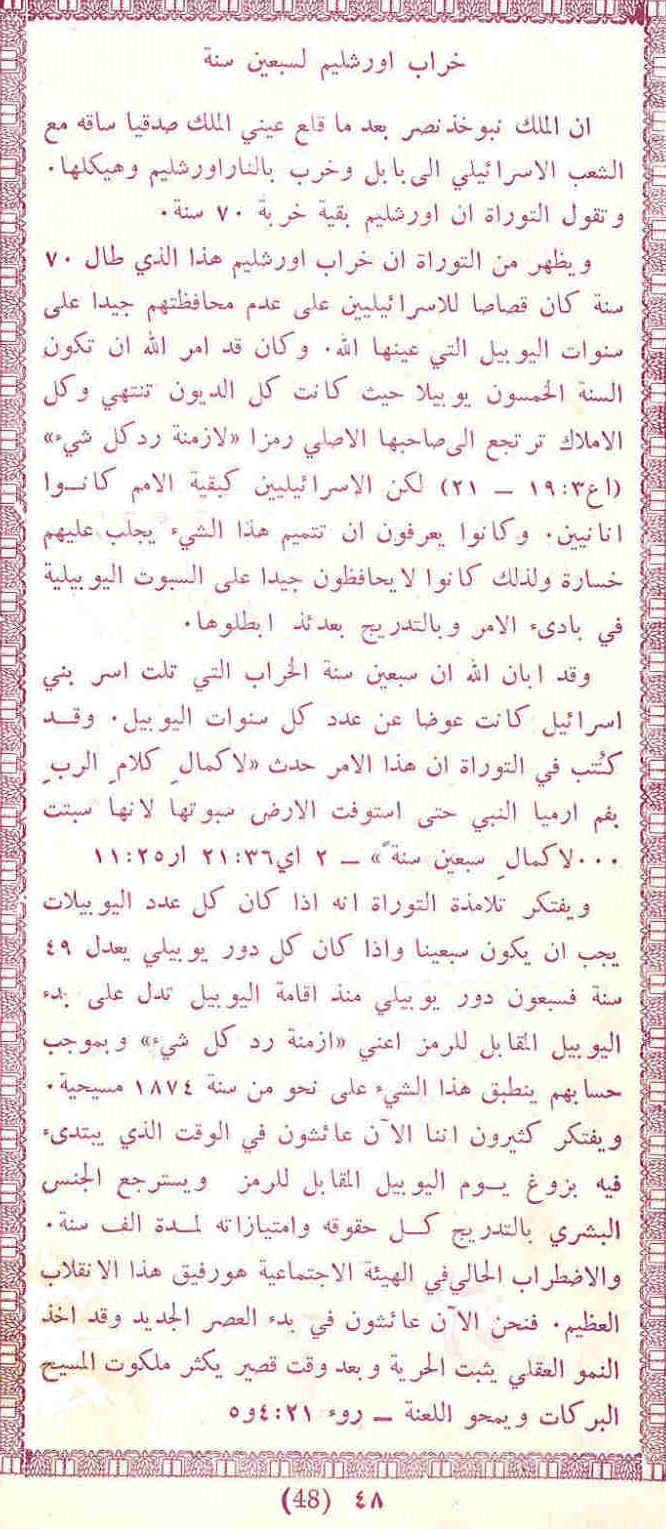 خراب اورشليم لسبعين سنة
ان الملك نبوخذنصر بعد ما قلع عيني الملك صدقيا ساقه مع
الشعب الاسرائيلي الى بابل وخرب بالنار اورشليم وهيكلها.
وتقول التوراة ان اورشليم بقية خربة ٧٠ سنة.
ويظهر من التوراة ان خراب اورشليم هذا الذي طال ٧٠
سنة كان قصاصا للاسرائيليين على عدم محافظتهم جيدا على
سنوات اليوبيل التي عينها الله. وكان قد امر الله ان تكون
السنة الخمسون يوبيلا حيث كانت كل الديون تنتهي وكل
الاملاك ترتجع الى صاحبها الاصلي رمزا «لازمنة رد كل شيء»
(اع٣:١٩ – ٢١) لكن الاسرائيليين كبقية الامم كانوا
انانيين. وكانوا يعرفون ان تتميم هذا الشيء يجلب عليهم
خسارة ولذلك كانوا لا يحافظون جيدا على السبوت اليوبيلية
في بادىء الامر وبالتدريج بعدئذ ابطلوها.
وقد ابان الله ان سبعين سنة الخراب التي تلت اسر بني
اسرائيل كانت عوضا عن عدد كل سنوات اليوبيل. وقد
كُتب في التوراة ان هذا الامر حدث «لاكمالِ كلامِ الربِ
بفم ارميا النبي حتى استوفت الارض سبوتها لانها سبتت
...لاكمالِ سبعين سنةً» – ٢ اي٣٦:٢١ ار٢٥:١١
ويفتكر تلامذة التوراة انه اذا كان كل عدد اليوبيلات
يجب ان يكون سبعينا واذا كان كل دور يوبيلي يعدل ٤٩
سنة فسبعون دور يوبيلي منذ اقامة اليوبيل تدل على بدء
اليوبيل المقابل للرمز اعني «ازمنة رد كل شيء» وبموجب
حسابهم ينطبق هذا الشيء على نحو من سنة ١٨٧٤ مسيحية.
ويفتكر كثيرون اننا الآن عائشون في الوقت الذي يبتدىء
فيه بزوغ يوم اليوبيل المقابل للرمز ويسترجع الجنس
البشري بالتدريج كل حقوقه وامتيازاته لمدة الف سنة.
والاضطراب الحالي في الهيئة الاجتماعية هو رفيق هذا الانقلاب
العظيم. فنحن الآن عائشون في بدء العصر الجديد وقد اخذ
النمو العقلي يثبت الحرية وبعد وقت قصير يكثر ملكوت المسيح
البركات ويمحو اللعنة – روء ٢١:٤و٥
٤٨ (48)